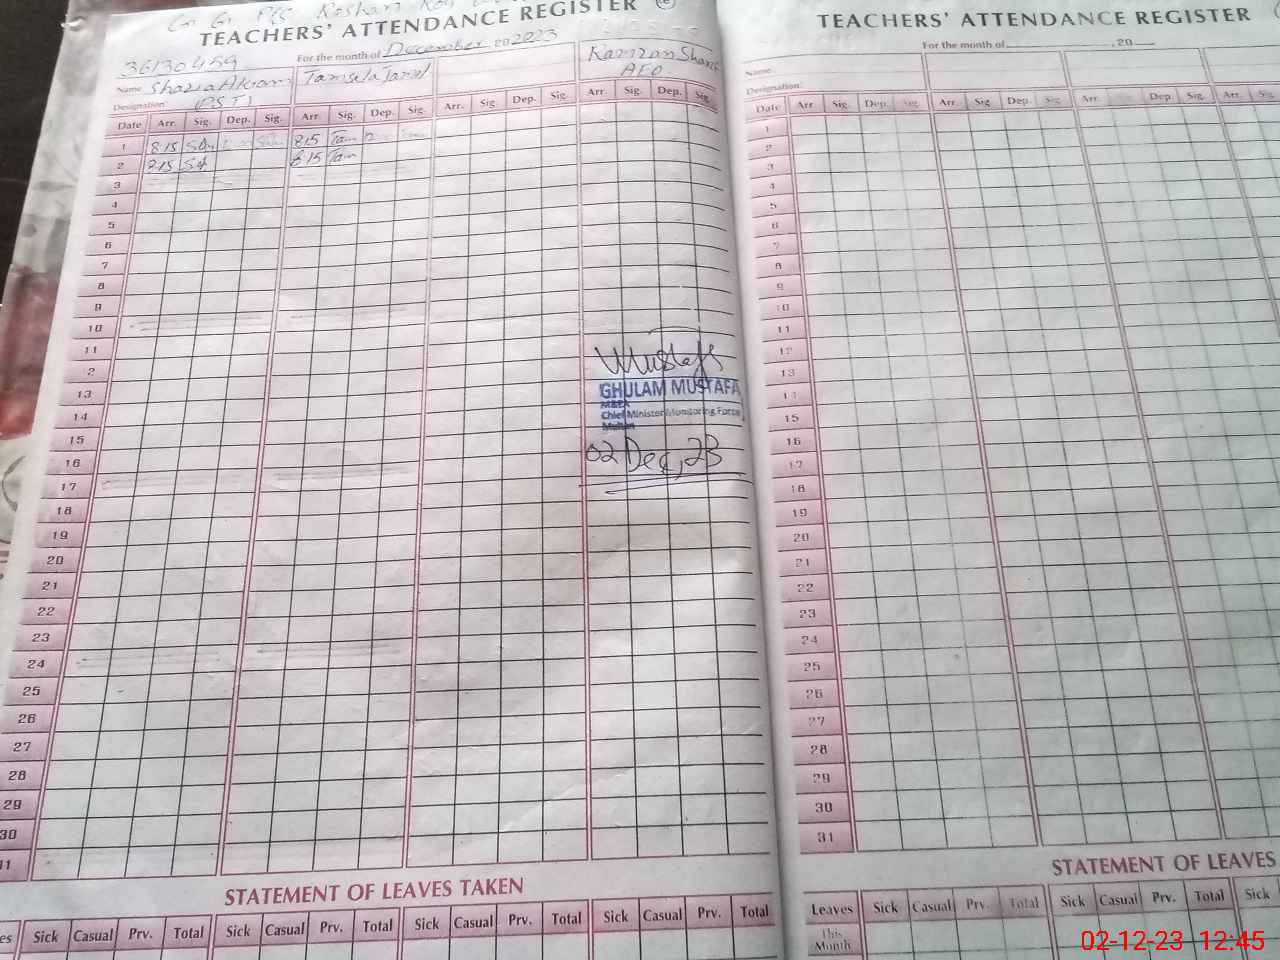 TEACHERS' ATTENDANCE REGISTER
For the month of December 2023
36130459
Name Shazia Akram Tamsela Jamil Kamran Sharif
Designation: (PST) AEO
Date Arr. Sig. Dep. Sig. Arr. Sig. Dep. Sig. Arr. Sig. Dep. Sig. Arr. Sig. Dep. Sig.
1 8:15 8:15 Tam
2 8:15 8:15 Tam
3
4
5
6
7
8
9
10
11
2
13
14
15
16
17
18
19
20
21
22
23
24
25
26
27
28
29
30
11
Mustafa
GHULAM MUSTAFA
M&EA
Chief Minister Monitoring Force
Multan
02 Dec, 23
STATEMENT OF LEAVES TAKEN
es Sick Casual Prv. Total Sick Casual Prv. Total Sick Casual Prv. Total Sick Casual Prv. Total
TEACHERS' ATTENDANCE REGISTER
For the month of , 20
Name
Designation:
Date Arr. Sig. Dep. Sig. Arr. Sig. Dep. Sig. Arr. Dep. Sig. Arr. Sig.
1
2
3
4
5
6
7
8
9
10
11
12
13
14
15
16
17
18
19
20
21
22
23
24
25
26
27
28
29
30
31
STATEMENT OF LEAVES
Leaves Sick Casual Prv. Total Sick Casual Prv. Total Sick
This
Month
02-12-23 12:45